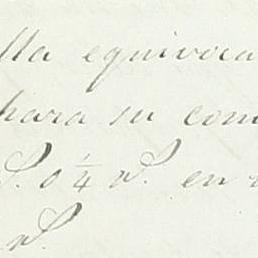 lla equivoca
hara su com
S. 0 1/4 rl. en
rl.